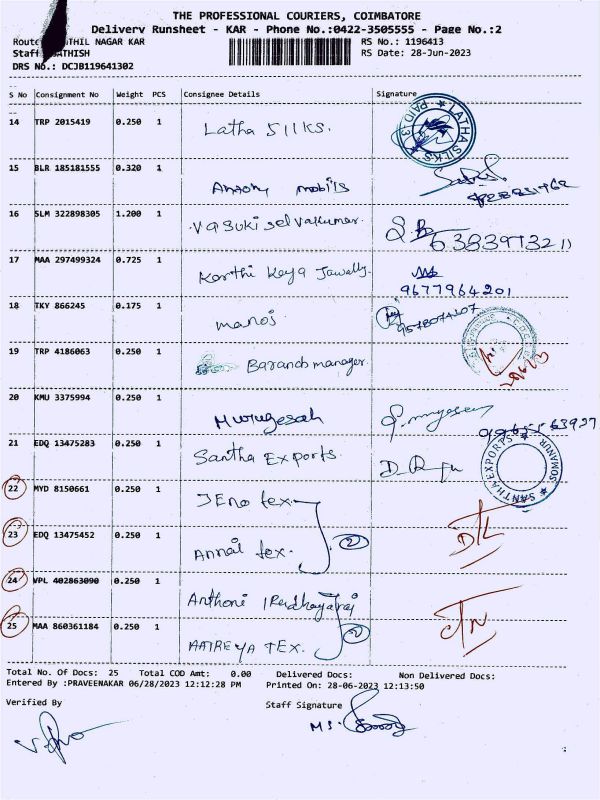 THE PROFESSIONAL COURIERS, COIMBATORE
Delivery Runsheet - KAR - Phone No.:0422-3505555 - Page No.:2
NAGAR KAR RS No.: 1196413
Staff RS Date: 28-Jun-2023
DRS No.: DCJB119641302
S No Consignment No Weight PCS Consignee Details Signature
14 TRP 2015419 0.250 1 Latha SIlks. LATHA SILKS PAID
15 BLR 185181555 0.320 1 Antony mobils
16 SLM 322898305 1.200 1 Vasuki Selvakumar. 6383973211
17 MAA 297499324 0.725 1 Karthi Keya 9677964201
18 TKY 866245 0.175 1 manoj
19 TRP 4186063 0.250 1 Baranch manager.
20 KMU 3375994 0.250 1 Murugesah
21 EDQ 13475283 0.250 1 Santha Exports. SANTHA EXPORPS SAMANUR
22 MYD 8150661 0.250 1 JEno tex.
23 EDQ 13475452 0.250 1 Annai tex. 2
24 VPL 402863090 0.250 1 Anthoni
25 MAA 860361184 0.250 1 AATREYA TEX. 2
Total No. Of Docs: 25 Total COD Amt: 0.00 Delivered Docs: Non Delivered Docs:
Entered By :PRAVEENAKAR 06/28/2023 12:12:28 PM Printed On: 28-06-2023 12:13:50
Verified By Staff Signature